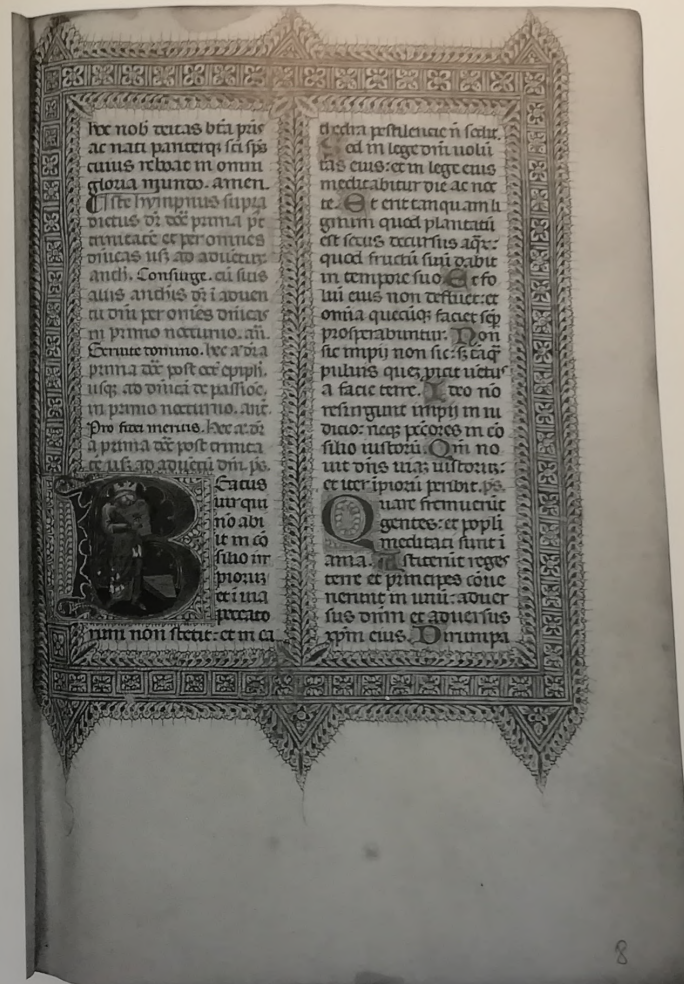 hoc nob̄ deitas bt̄a pris
ac nati pariterqꝫ sci sp̄s
cuius reboat in omni
gloria mundo. amen.
Iste hympnus supra
dictus dr̄ dc̄e prima pt
trinitatē et per omnes
dn̄icas usqꝫ ad aduētuꝫ.
anth̄. Consurge. cū suis
aliis anth̄is dr̄ ī aduen
tu dn̄i per om̄es dn̄icas
in primo nocturno. an̄.
Seruite domino. hec a dr̄ a
prima dc̄e post oct̄ epiph̄.
usqꝫ ad dn̄icā de passiōe.
in primo nocturno. anc̄.
Pro fidei meritis. Hec a dr̄
a prima dc̄e post trinita
tē usqꝫ ad aduētū dn̄i. ps̄.
Beatus
uir qui
nō abi
it in cō
silio im
pioruꝫ
et ī uia
peccato
rum non stetit: et in ca
thedra pestilencie n̄ sedit.
Sed in lege dn̄i uolū
tas eius: et in lege eius
meditabitur die ac noc
te. Et erit tanquam li
gnum quod plantatū
est secus decursus aq̄ꝝ:
quod fructū suū dabit
in tempore suo. Et fo
liū eius non defluet: et
om̄ia quecūqꝫ faciet sēp
prosperabuntur. Non
sic impij non sic: sꝫ tāqꝫ
puluis queꝫ ꝓicit uētus
a facie terre. Ideo nō
resurgunt impij in iu
dicio: neqꝫ pc̄cores in cō
silio iustorū. Qm̄ no
uit dn̄s uiaꝫ iustoruꝫ:
et iter īpiorū peribit. ps̄.
Quare fremuerūt
gentes: et popli
meditati sunt ī
ania. Astiterūt reges
terre et principes cōue
nerunt in unū: aduer
sus dn̄m et aduersus
xp̄m eius. Dirumpa
8